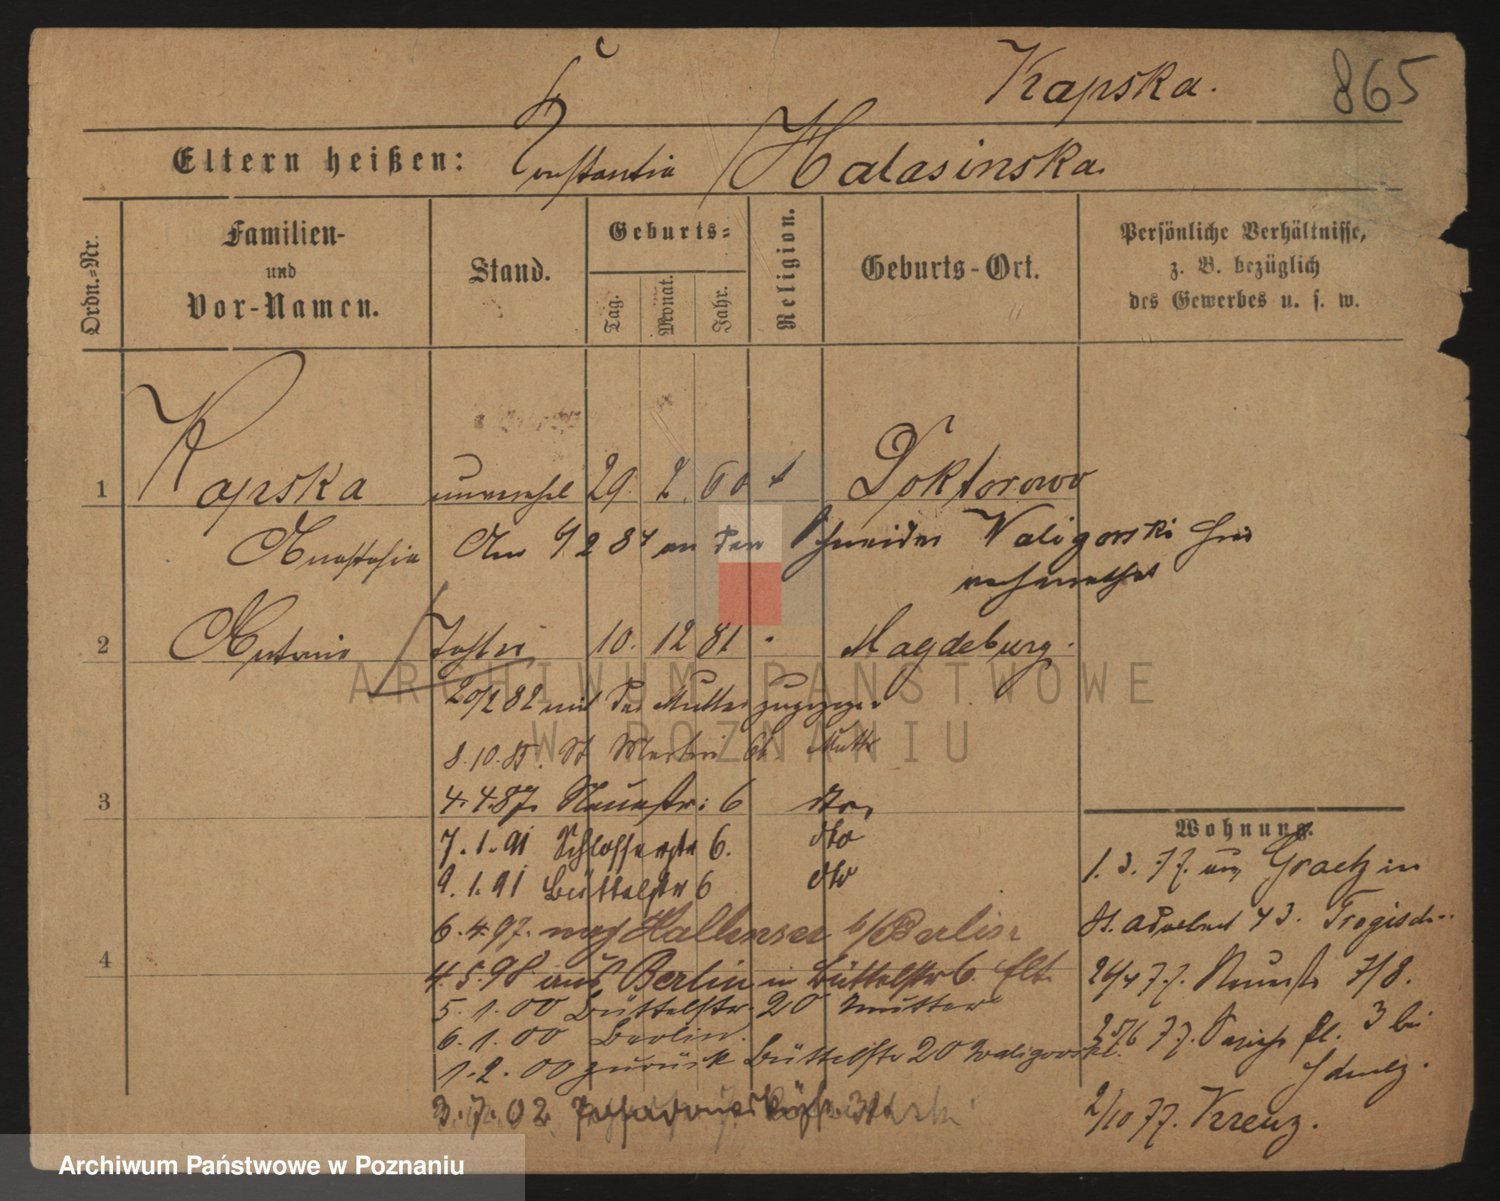 Kapska. 865
Eltern heißen: Constantia Halasinska.
Ordn.=Nr.
Familien-
und
Vor-Namen.
Stand.
Geburts=
Tag.
Monat.
Jahr.
Religion.
Geburts-Ort.
Persönliche Verhältnisse,
z. B. bezüglich
des Gewerbes u. s. w.
1 Kapska unverehel 29. 2. 60 Doktorowo
Anastasia Am 4 2 84 an den Schneider Waligorski hier
verheirathet
2 Antonie Tochter 10. 12 81 Magdeburg.
20/2 82 mit der Mutter zugezogen
8.10.85. St Martin Mutter
3 4.4.87. Neuestr: 6 dto
7.1.91 Schlosserstr 6. dto
9.1.91 Büttelstr 6 dto
6.4.97. nach Hallensee b/Berlin
4 4.5.98 aus Berlin in Büttelstr 6.
5.1.00 Büttelstr. 20 Mutter
6.1.00 Berlin.
1.2.00 zurück Büttelstr 20 Waligorski.
3.7.02
Wohnung.
1.3.77. aus Graetz in
St. Adalbert 43.
26/4 77. Neuestr 7/8.
25/6 77. 3 bei
2/10 77. Kreuz.
ARCHIWUM PAŃSTWOWE
W POZNANIU
Archiwum Państwowe w Poznaniu